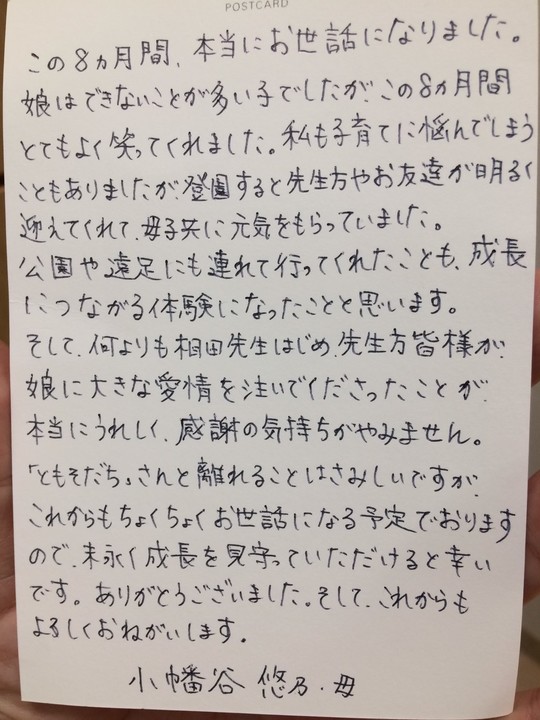 POSTCARD
この8ヵ月間、本当にお世話になりました。
娘はできないことが多い子でしたが、この8ヵ月間
とてもよく笑ってくれました。私も子育てに悩んでしまう
こともありましたが、登園すると先生方やお友達が明るく
迎えてくれて、母子共に元気をもらっていました。
公園や遠足にも連れて行ってくれたことも、成長
につながる体験になったことと思います。
そして、何よりも相田先生はじめ、先生方皆様が、
娘に大きな愛情を注いでくださったことが、
本当にうれしく、感謝の気持ちがやみません。
「ともそだち」さんと離れることはさみしいですが、
これからもちょくちょくお世話になる予定でおります
ので、末永く成長を見守っていただけると幸い
です。ありがとうございました。そして、これからも
よろしくおねがいします。
小幡谷 悠乃・母